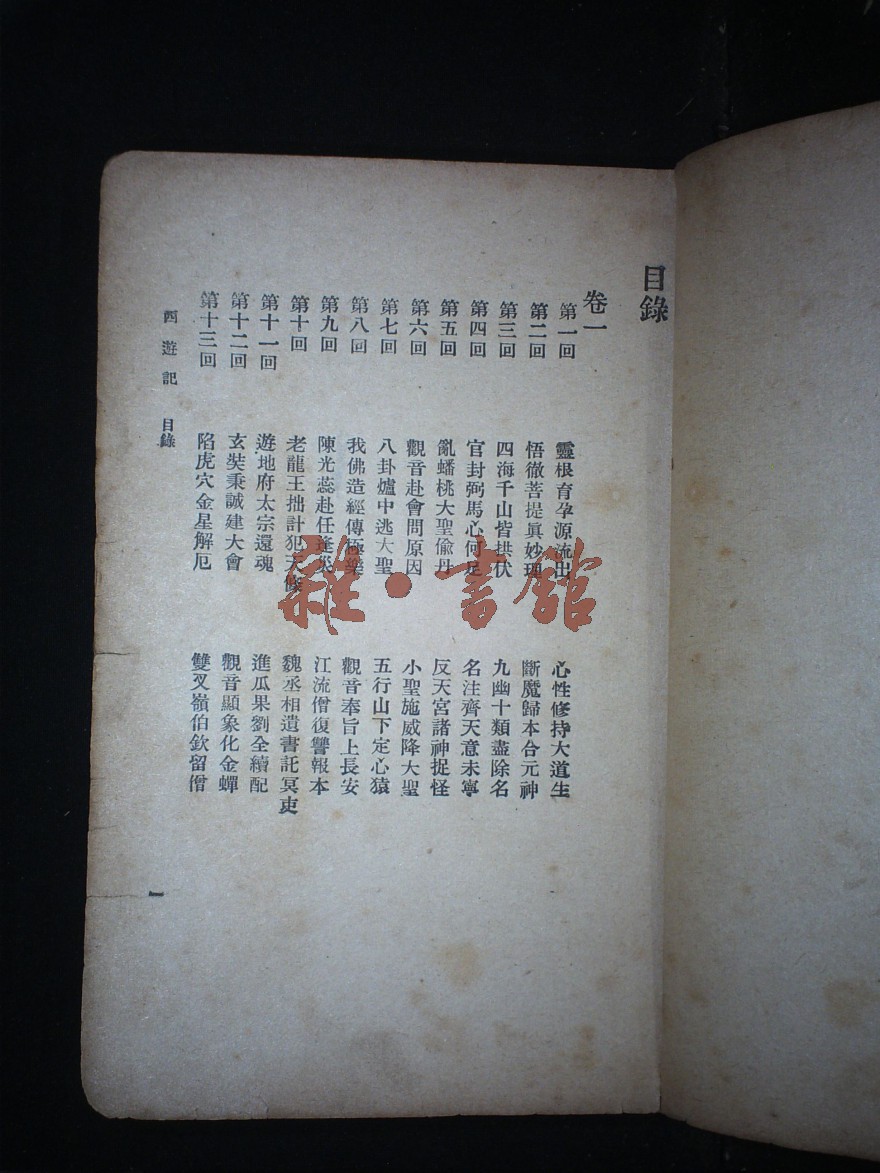 目錄
卷一
第一回 靈根育孕源流出 心性修持大道生
第二回 悟徹菩提眞妙理 斷魔歸本合元神
第三回 四海千山皆拱伏 九幽十類盡除名
第四回 官封弼馬心何足 名注齊天意未寧
第五回 亂蟠桃大聖偸丹 反天宮諸神捉怪
第六回 觀音赴會問原因 小聖施威降大聖
第七回 八卦爐中逃大聖 五行山下定心猿
第八回 我佛造經傳極樂 觀音奉旨上長安
第九回 陳光蕊赴任逢災 江流僧復讐報本
第十回 老龍王拙計犯天條 魏丞相遺書託冥吏
第十一回 遊地府太宗還魂 進瓜果劉全續配
第十二回 玄奘秉誠建大會 觀音顯象化金蟬
第十三回 陷虎穴金星解厄 雙叉嶺伯欽留僧
西遊記 目錄
一
雜·書館